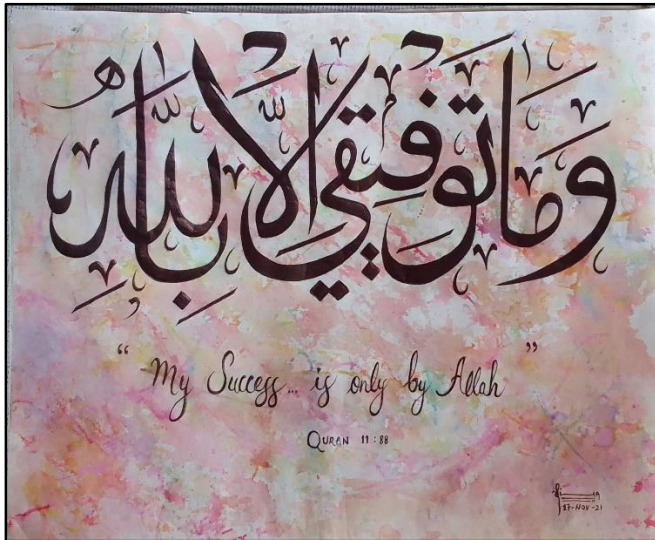 وَمَا تَوْفِيقِي إِلَّا بِاللَّهِ
“ My Success... is only by Allah ”
QURAN 11:88
17-NOV-21